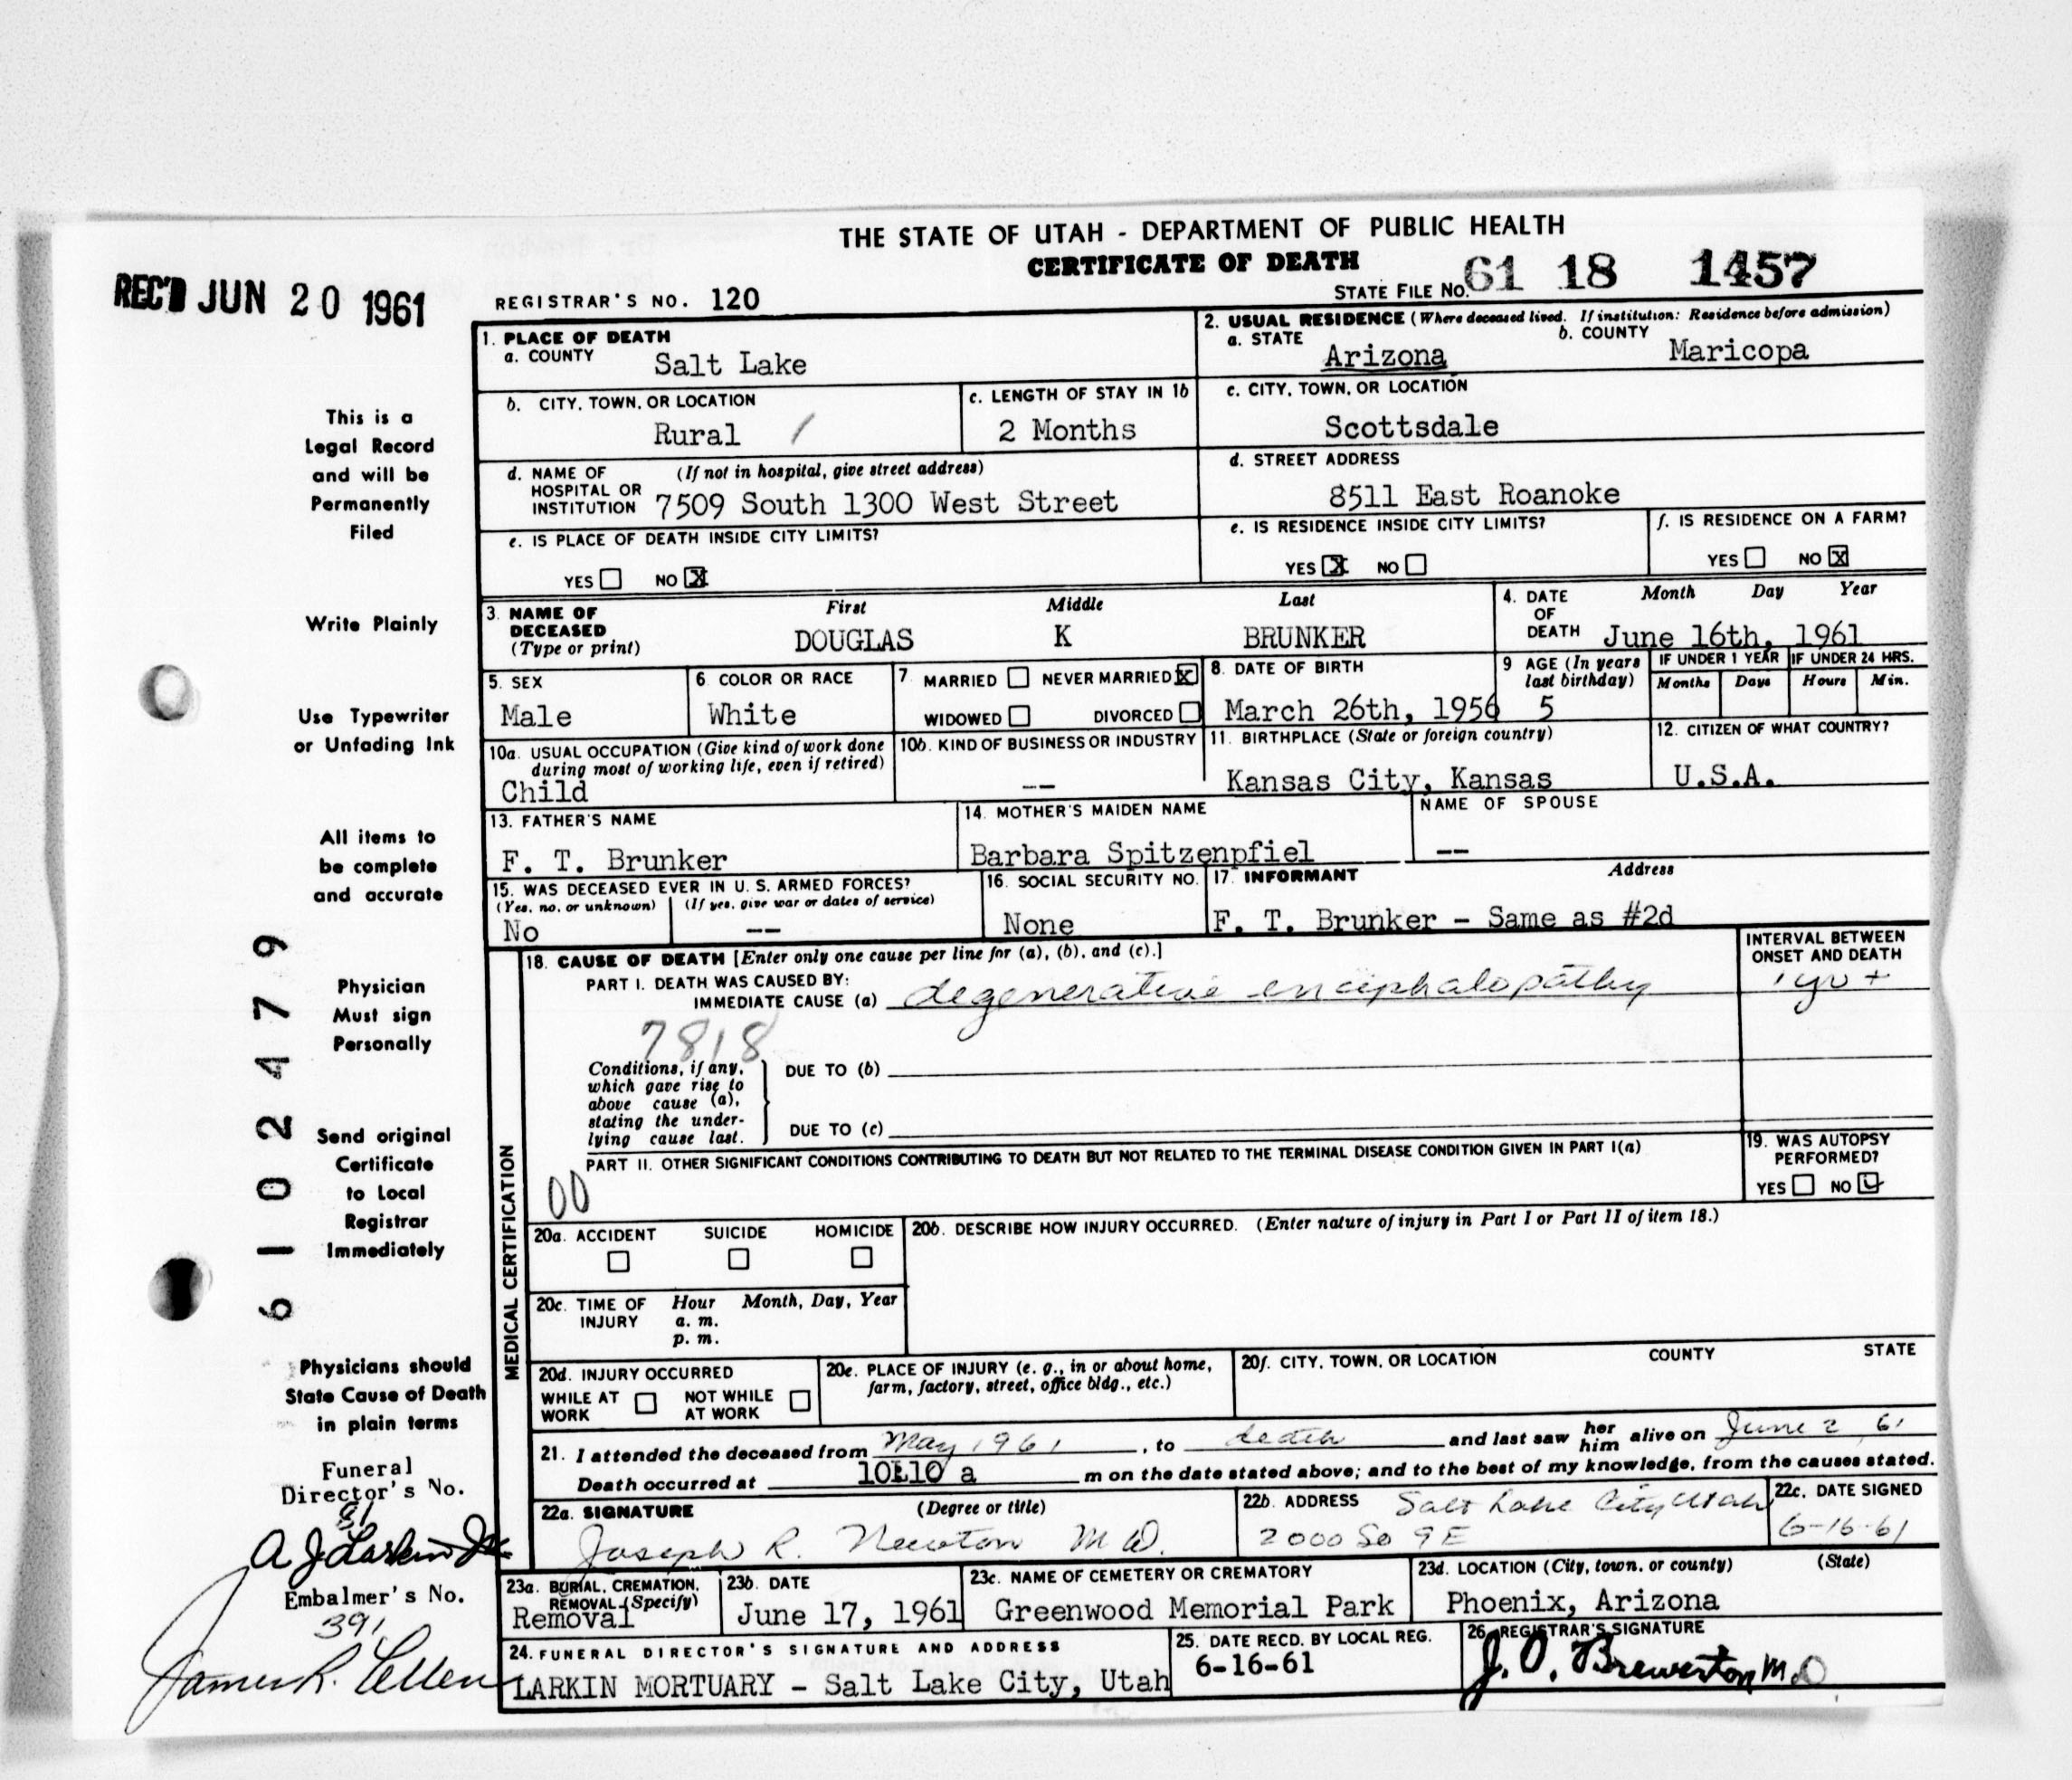 THE STATE OF UTAH - DEPARTMENT OF PUBLIC HEALTH
CERTIFICATE OF DEATH
REC'D JUN 20 1961
REGISTRAR'S NO. 120
STATE FILE NO. 61 18 1457
1. PLACE OF DEATH
a. COUNTY Salt Lake
2. USUAL RESIDENCE (Where deceased lived. If institution: Residence before admission)
a. STATE Arizona b. COUNTY Maricopa
b. CITY, TOWN, OR LOCATION Rural /
c. LENGTH OF STAY IN 1b 2 Months
c. CITY, TOWN, OR LOCATION Scottsdale
d. NAME OF HOSPITAL OR INSTITUTION (If not in hospital, give street address) 7509 South 1300 West Street
d. STREET ADDRESS 8511 East Roanoke
e. IS PLACE OF DEATH INSIDE CITY LIMITS?
YES NO X
e. IS RESIDENCE INSIDE CITY LIMITS?
YES X NO
f. IS RESIDENCE ON A FARM?
YES NO X
3. NAME OF DECEASED (Type or print)
First Middle Last
DOUGLAS K BRUNKER
4. DATE OF DEATH Month Day Year
June 16th, 1961
5. SEX Male
6. COLOR OR RACE White
7. MARRIED NEVER MARRIED X
WIDOWED DIVORCED
8. DATE OF BIRTH March 26th, 1956
9 AGE (In years last birthday) 5
IF UNDER 1 YEAR Months Days
IF UNDER 24 HRS. Hours Min.
10a. USUAL OCCUPATION (Give kind of work done during most of working life, even if retired)
Child
10b. KIND OF BUSINESS OR INDUSTRY --
11. BIRTHPLACE (State or foreign country) Kansas City, Kansas
12. CITIZEN OF WHAT COUNTRY? U.S.A.
13. FATHER'S NAME F. T. Brunker
14. MOTHER'S MAIDEN NAME Barbara Spitzenpfiel
NAME OF SPOUSE --
15. WAS DECEASED EVER IN U. S. ARMED FORCES?
(Yes, no, or unknown) (If yes, give war or dates of service)
No --
16. SOCIAL SECURITY NO. None
17. INFORMANT Address
F. T. Brunker - Same as #2d
MEDICAL CERTIFICATION
18. CAUSE OF DEATH [Enter only one cause per line for (a), (b), and (c).]
INTERVAL BETWEEN ONSET AND DEATH
PART I. DEATH WAS CAUSED BY:
IMMEDIATE CAUSE (a) degenerative encephalopathy 1 yr +
7818
Conditions, if any, which gave rise to above cause (a), stating the underlying cause last.
DUE TO (b)
DUE TO (c)
PART II. OTHER SIGNIFICANT CONDITIONS CONTRIBUTING TO DEATH BUT NOT RELATED TO THE TERMINAL DISEASE CONDITION GIVEN IN PART I(a)
00
19. WAS AUTOPSY PERFORMED?
YES NO
20a. ACCIDENT SUICIDE HOMICIDE
20b. DESCRIBE HOW INJURY OCCURRED. (Enter nature of injury in Part I or Part II of item 18.)
20c. TIME OF INJURY Hour Month, Day, Year
a. m.
p. m.
20d. INJURY OCCURRED
WHILE AT WORK NOT WHILE AT WORK
20e. PLACE OF INJURY (e. g., in or about home, farm, factory, street, office bldg., etc.)
20f. CITY, TOWN, OR LOCATION COUNTY STATE
21. I attended the deceased from May 1961, to death and last saw her him alive on June 2, 61
Death occurred at 10:10 a m on the date stated above; and to the best of my knowledge, from the causes stated.
22a. SIGNATURE (Degree or title)
Joseph R. Newton M D.
22b. ADDRESS Salt Lake City Utah
2000 So 9 E
22c. DATE SIGNED 6-16-61
23a. BURIAL, CREMATION, REMOVAL (Specify) Removal
23b. DATE June 17, 1961
23c. NAME OF CEMETERY OR CREMATORY Greenwood Memorial Park
23d. LOCATION (City, town, or county) (State)
Phoenix, Arizona
24. FUNERAL DIRECTOR'S SIGNATURE AND ADDRESS
LARKIN MORTUARY - Salt Lake City, Utah
25. DATE RECD. BY LOCAL REG. 6-16-61
26. REGISTRAR'S SIGNATURE
J. O. Brewerton M.D
This is a
Legal Record
and will be
Permanently
Filed
Write Plainly
Use Typewriter
or Unfading Ink
All items to
be complete
and accurate
Physician
Must sign
Personally
Send original
Certificate
to Local
Registrar
Immediately
Physicians should
State Cause of Death
in plain terms
Funeral
Director's No.
81
A J Larkin
Embalmer's No.
391
James R.
6102479